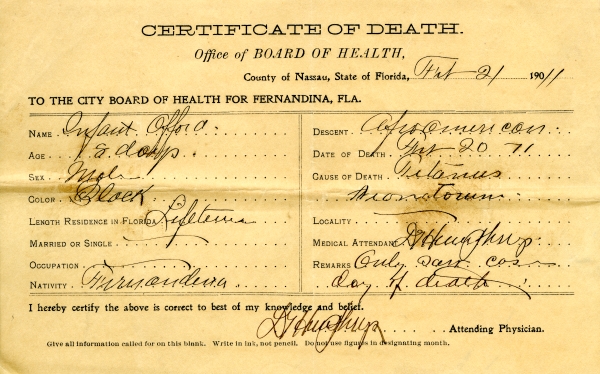 CERTIFICATE OF DEATH.
Office of BOARD OF HEALTH,
County of Nassau, State of Florida, Feb 21 19011
TO THE CITY BOARD OF HEALTH FOR FERNANDINA, FLA.
NAME Infant Offord
AGE 12 days
SEX Male
COLOR Black
LENGTH RESIDENCE IN FLORIDA Lifetime
MARRIED OR SINGLE
OCCUPATION
NATIVITY Fernandina
DESCENT Afro American
DATE OF DEATH Feb 20 11
CAUSE OF DEATH Tetanus
Neonatorum
LOCALITY
MEDICAL ATTENDANT Humphreys
REMARKS Only saw case
day of death
I hereby certify the above is correct to best of my knowledge and belief.
Humphreys Attending Physician.
Give all information called for on this blank. Write in ink, not pencil. Do not use figures in designating month.